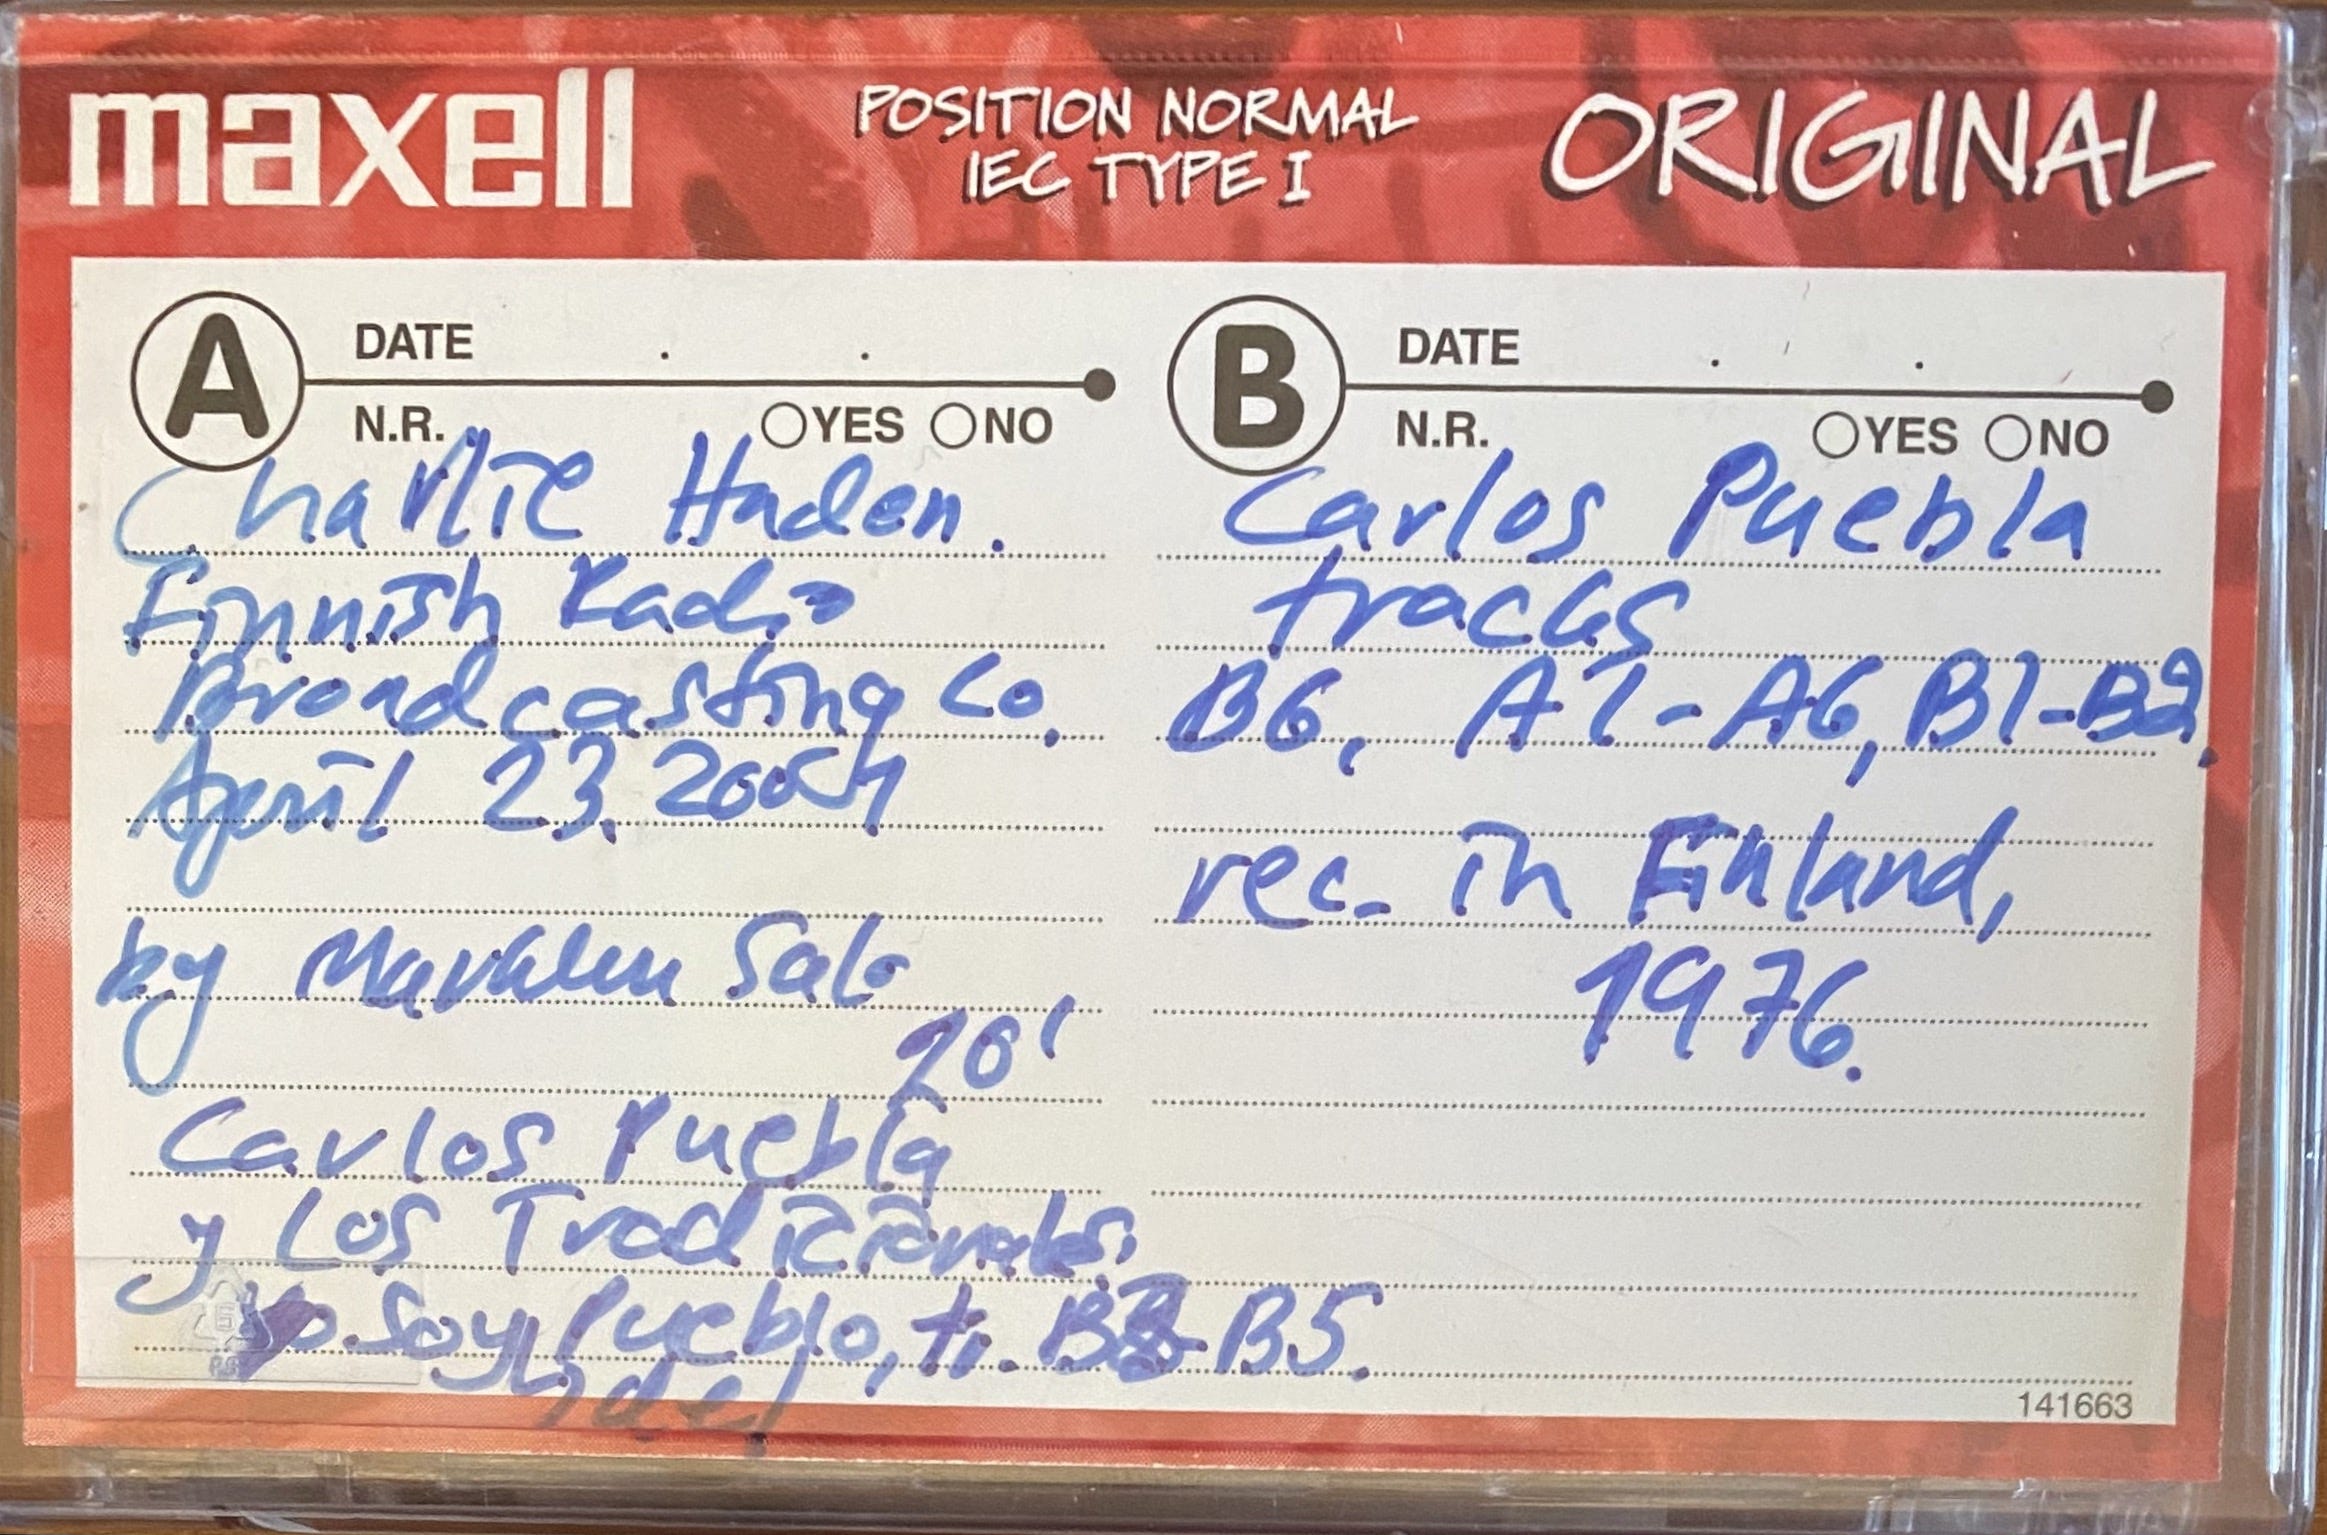 maxell
POSITION NORMAL
IEC TYPE I
ORIGINAL
A
DATE . .
N.R. YES NO
Charlie Haden.
Finnish Radio
Broadcasting Co.
April 23. 2004
by Markku Salo
20'
Carlos Puebla
y Los Tradicionales.
Yo Soy Pueblo, tr. B3-B5.
Fidel
B
DATE . .
N.R. YES NO
Carlos Puebla
tracks
B6, A1-A6, B1-B2.
rec. in Finland,
1976.
6
PS
141663